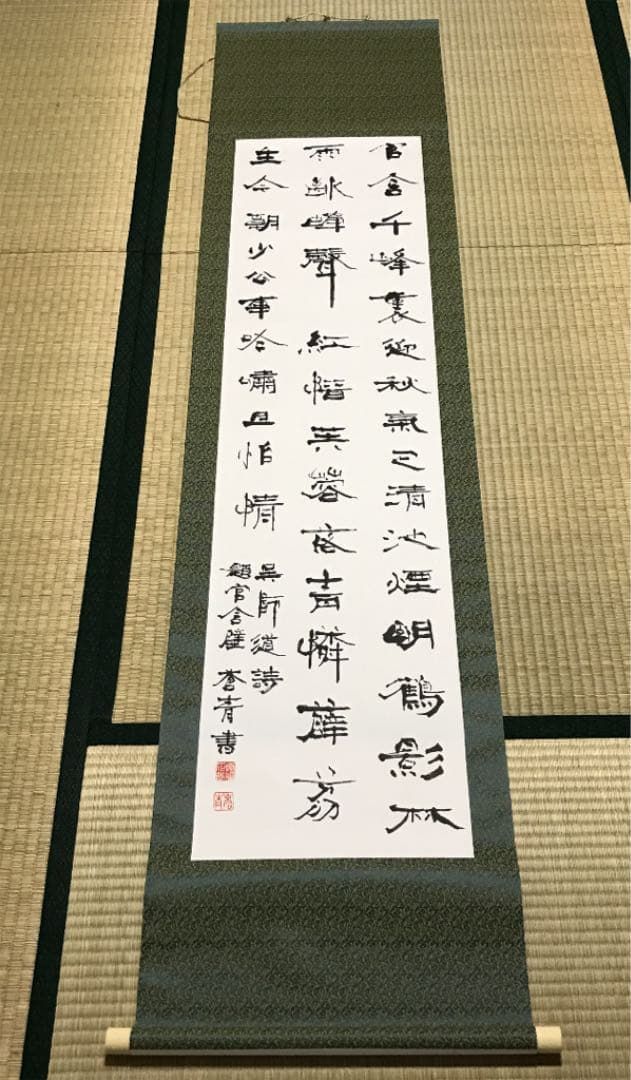 官舍千峰裏迎秋氣已清池煙明鶴影林
雨蟬聲紅惜芙蓉青憐薜荔
生今朝少公事吟嘯且怡情
吳師道詩
題官舍壁 蒼青書